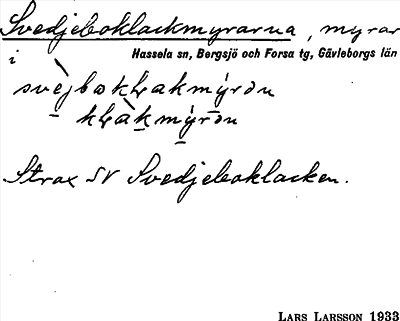 Svedjeboklackmyrarna, myrar
i
Hassela sn, Bergsjö och Forsa tg, Gävleborgs län
Strax SV Svedjeboklacken.
LARS LARSSON 1933